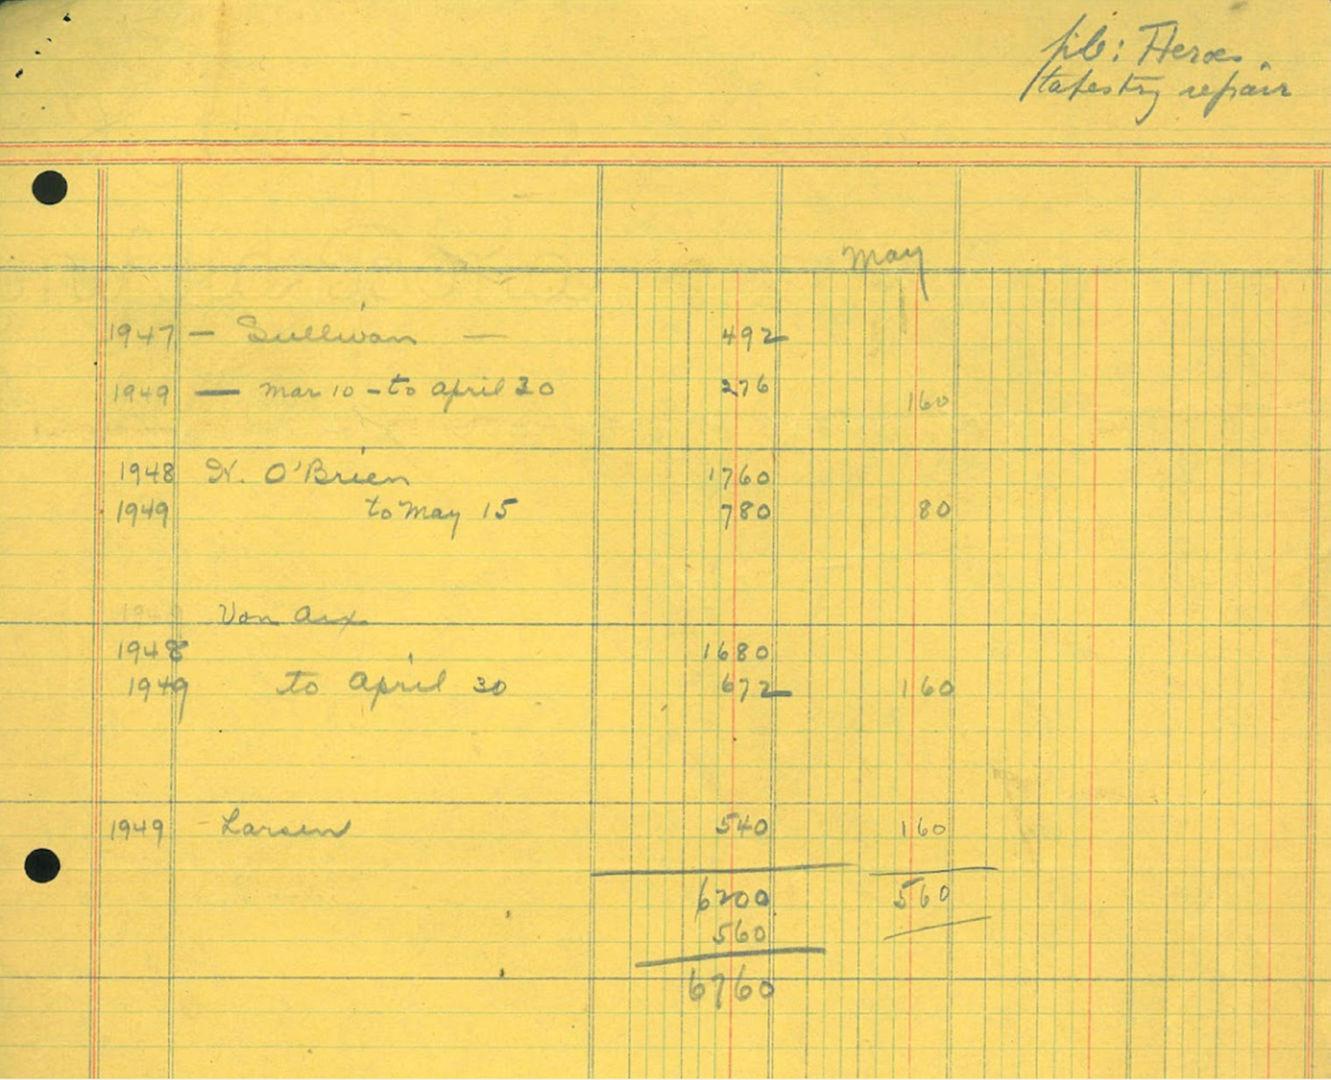 file: Heroes
tapestry repair
May
1947 — Sullivan — 492
1949 — Mar 10 - to April 30 276 160
1948 N. O'Brien 1760
1949 to May 15 780 80
Von Arx
1948 1680
1949 to April 30 672 160
1949 - Larsen 540 160
6200 560
560
6760